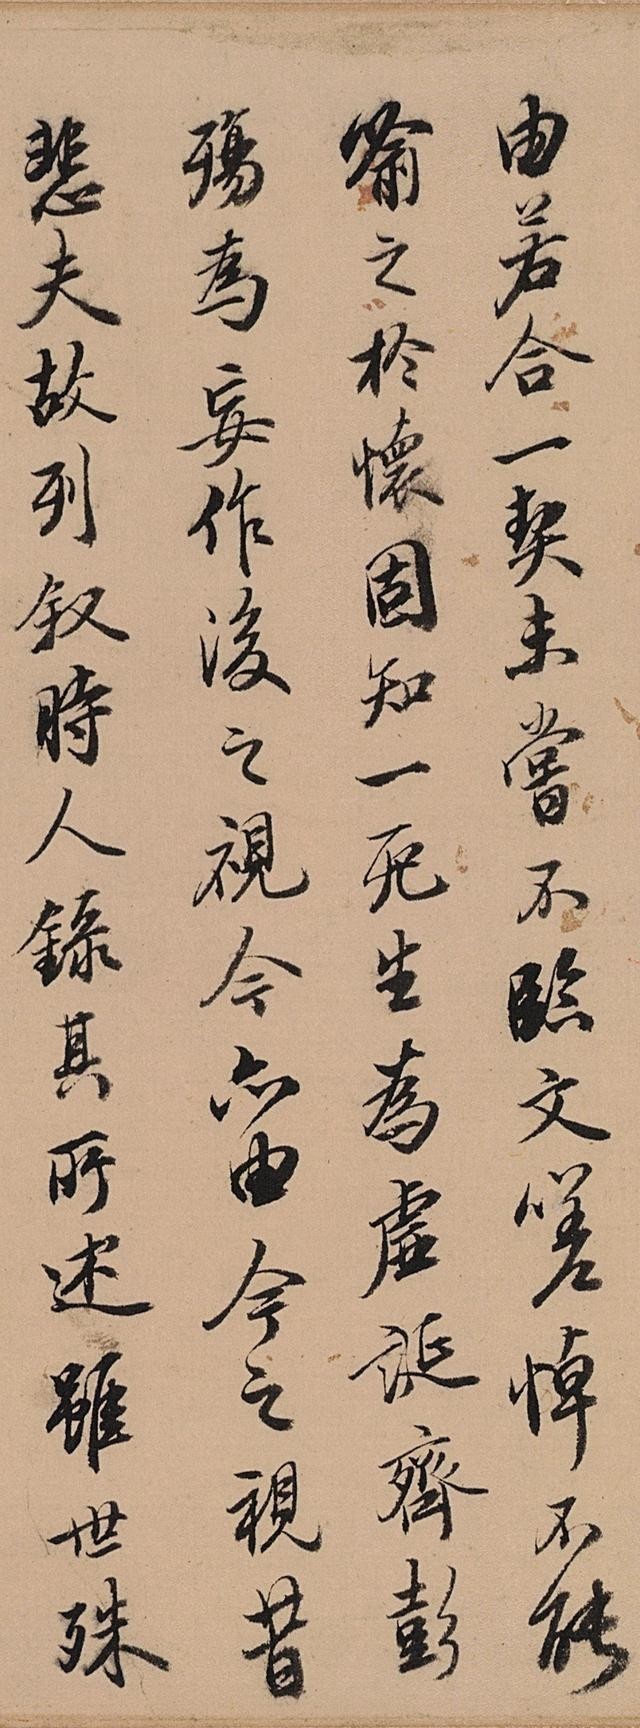 由若合一契未嘗不臨文嗟悼不能
喻之於懷固知一死生為虛誕齊彭
殤為妄作後之視今亦由今之視昔
悲夫故列敘時人錄其所述雖世殊